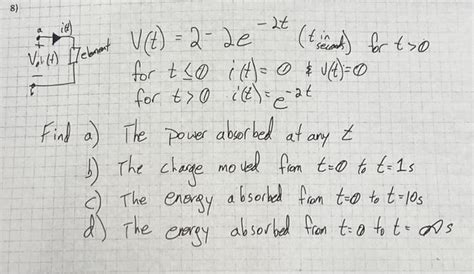 8)
a i(t)
+
Vab(t) element
-
b
V(t) = 2 - 2e^-2t (t in seconds) for t>0
for t ≤ 0 i(t) = 0 & V(t)=0
for t > 0 i(t) = e^-2t
Find a) The power absorbed at any t
b) The charge moved from t=0 to t=1s
c) The energy absorbed from t=0 to t=10s
d) The energy absorbed from t=0 to t=∞s